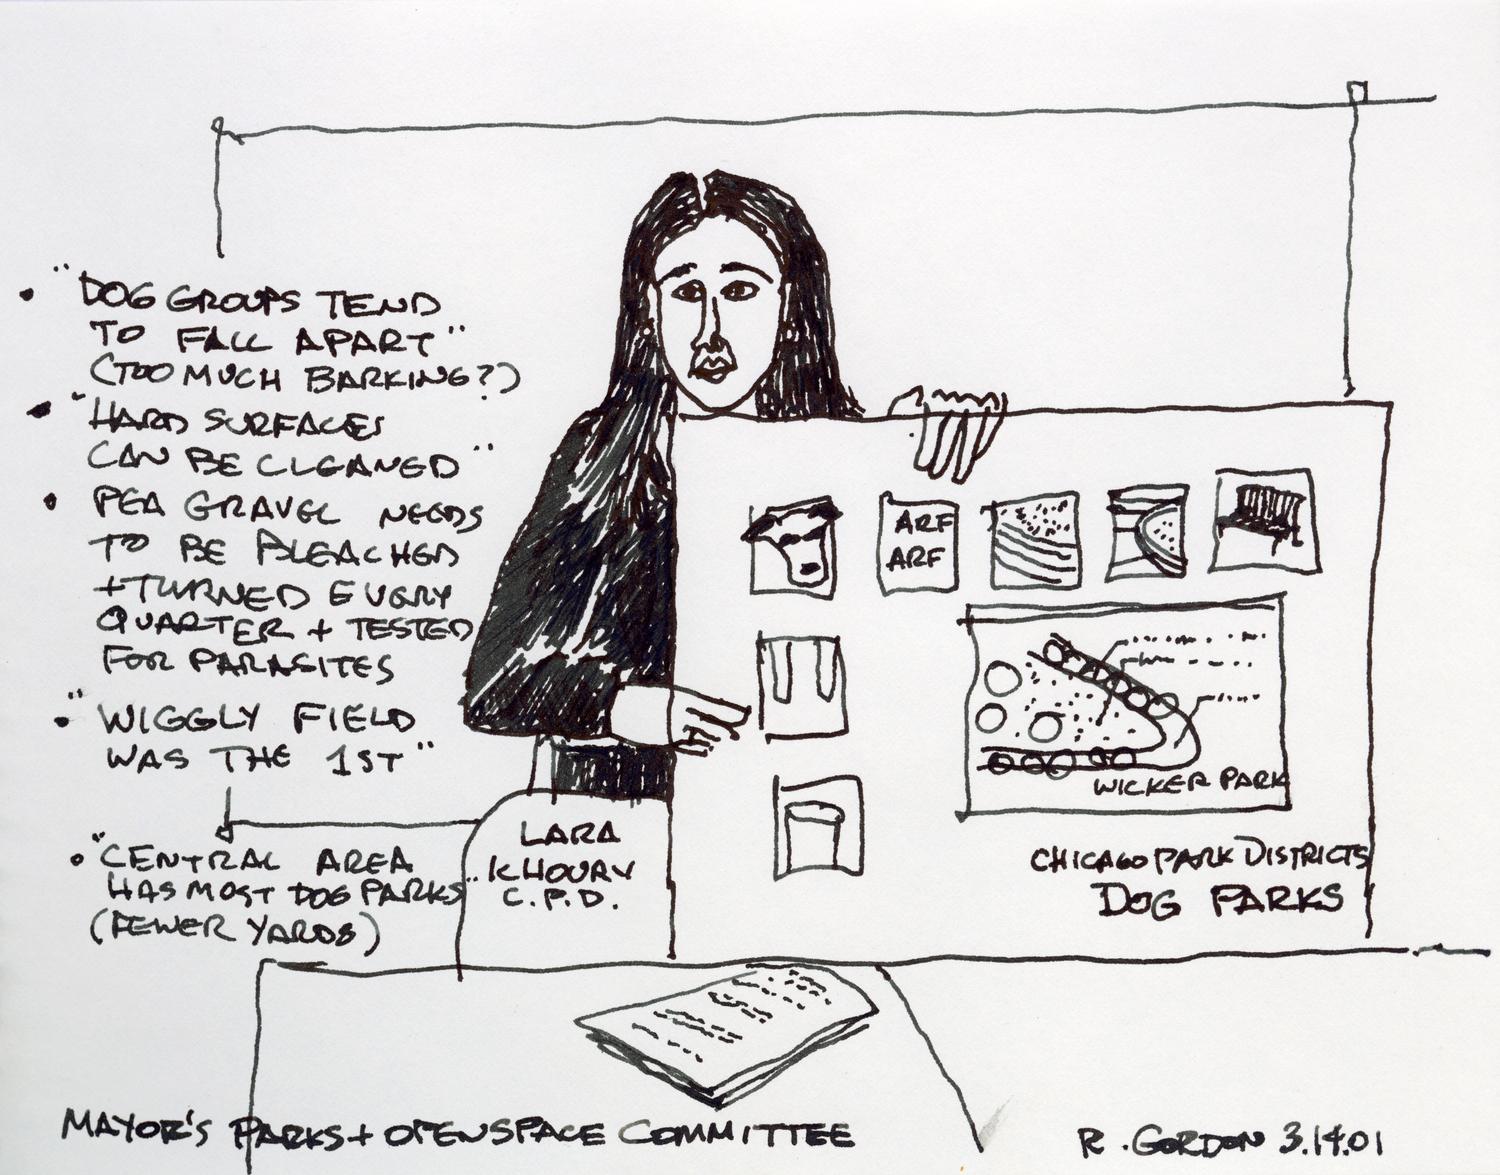 • "DOG GROUPS TEND
TO FALL APART"
(TOO MUCH BARKING?)
• "HARD SURFACES
CAN BE CLEANED"
• PEA GRAVEL NEEDS
TO BE BLEACHED
+ TURNED EVERY
QUARTER + TESTED
FOR PARASITES
• "WIGGLY FIELD
WAS THE 1ST"
• "CENTRAL AREA
HAS MOST DOG PARKS"
(FEWER YARDS)
LARA
KHOURY
C.P.D.
ARF
ARF
WICKER PARK
CHICAGO PARK DISTRICTS
DOG PARKS
MAYOR'S PARKS + OPENSPACE COMMITTEE
R. GORDON 3.14.01